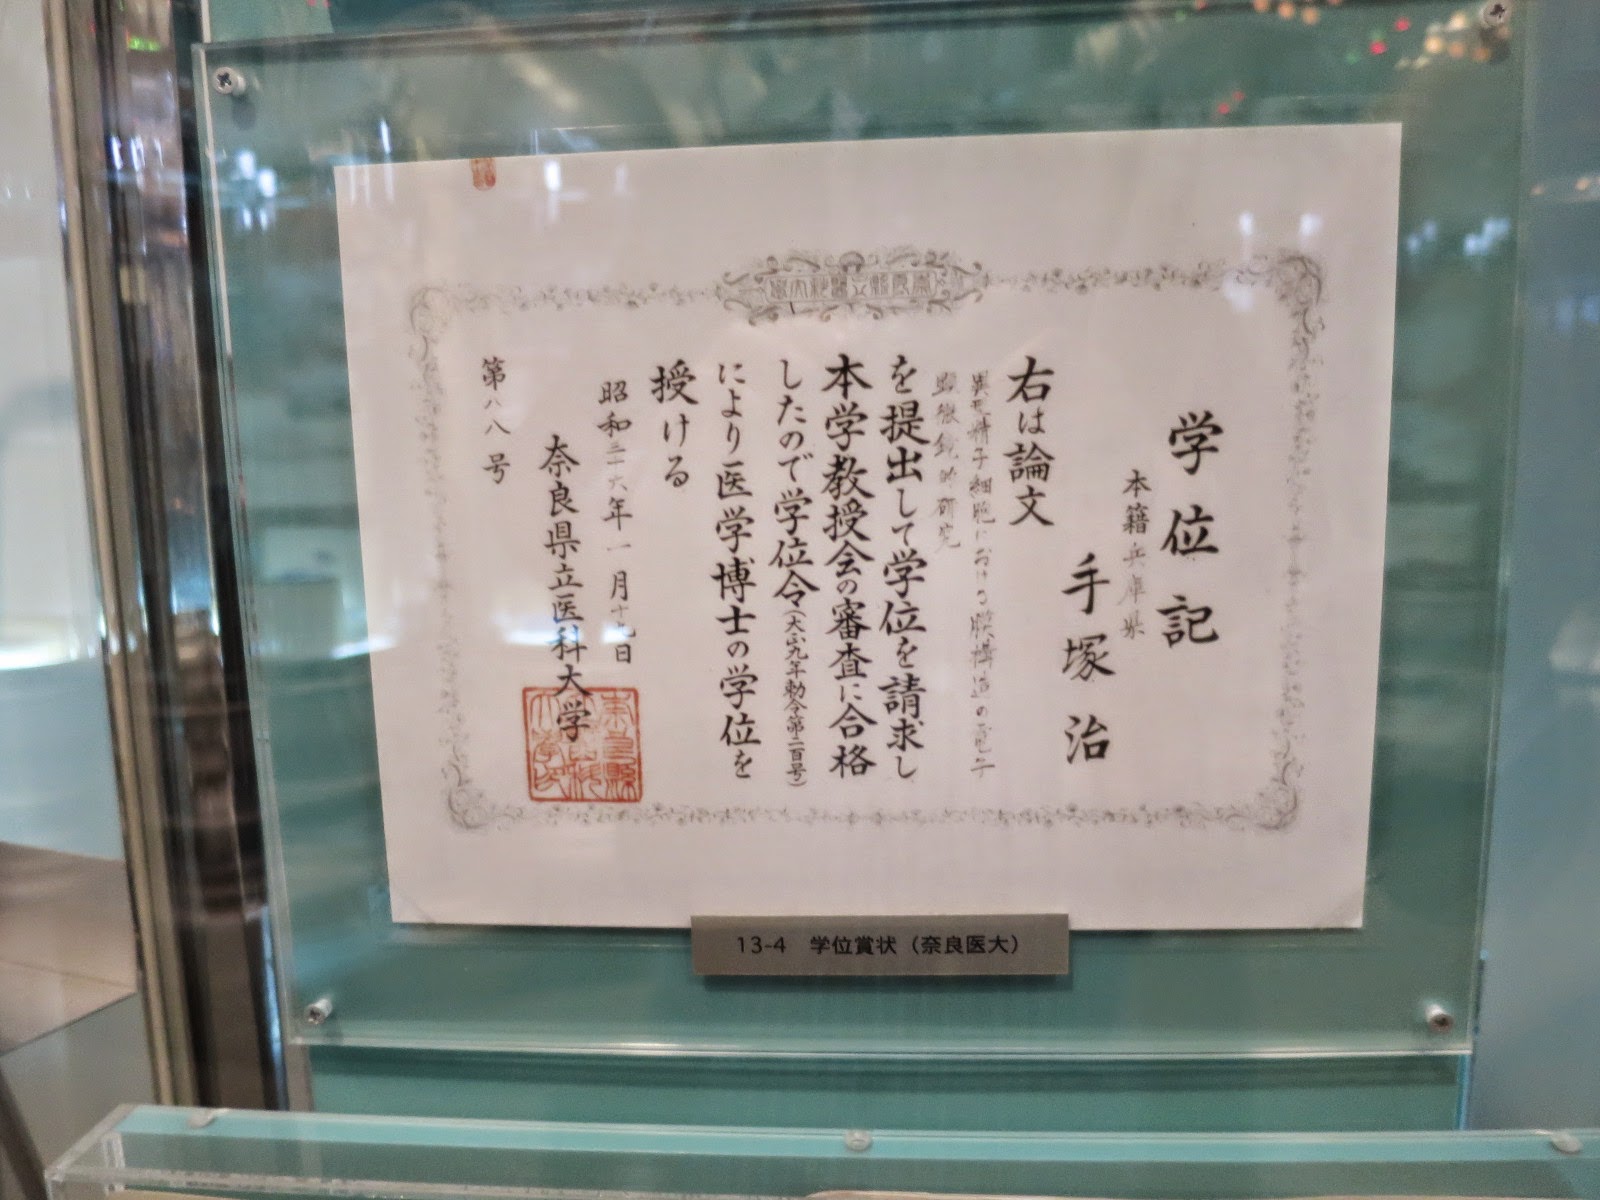 奈良縣立醫科大學
学位記
本籍兵庫県
手塚治
右は論文
異型精子細胞における膜構造の電子
顕微鏡的研究
を提出して学位を請求し
本学教授会の審査に合格
したので学位令(大正九年勅令第二百号)
により医学博士の学位を
授ける
昭和三十六年一月十九日
奈良県立医科大学
第八八号
13-4 学位賞状（奈良医大）